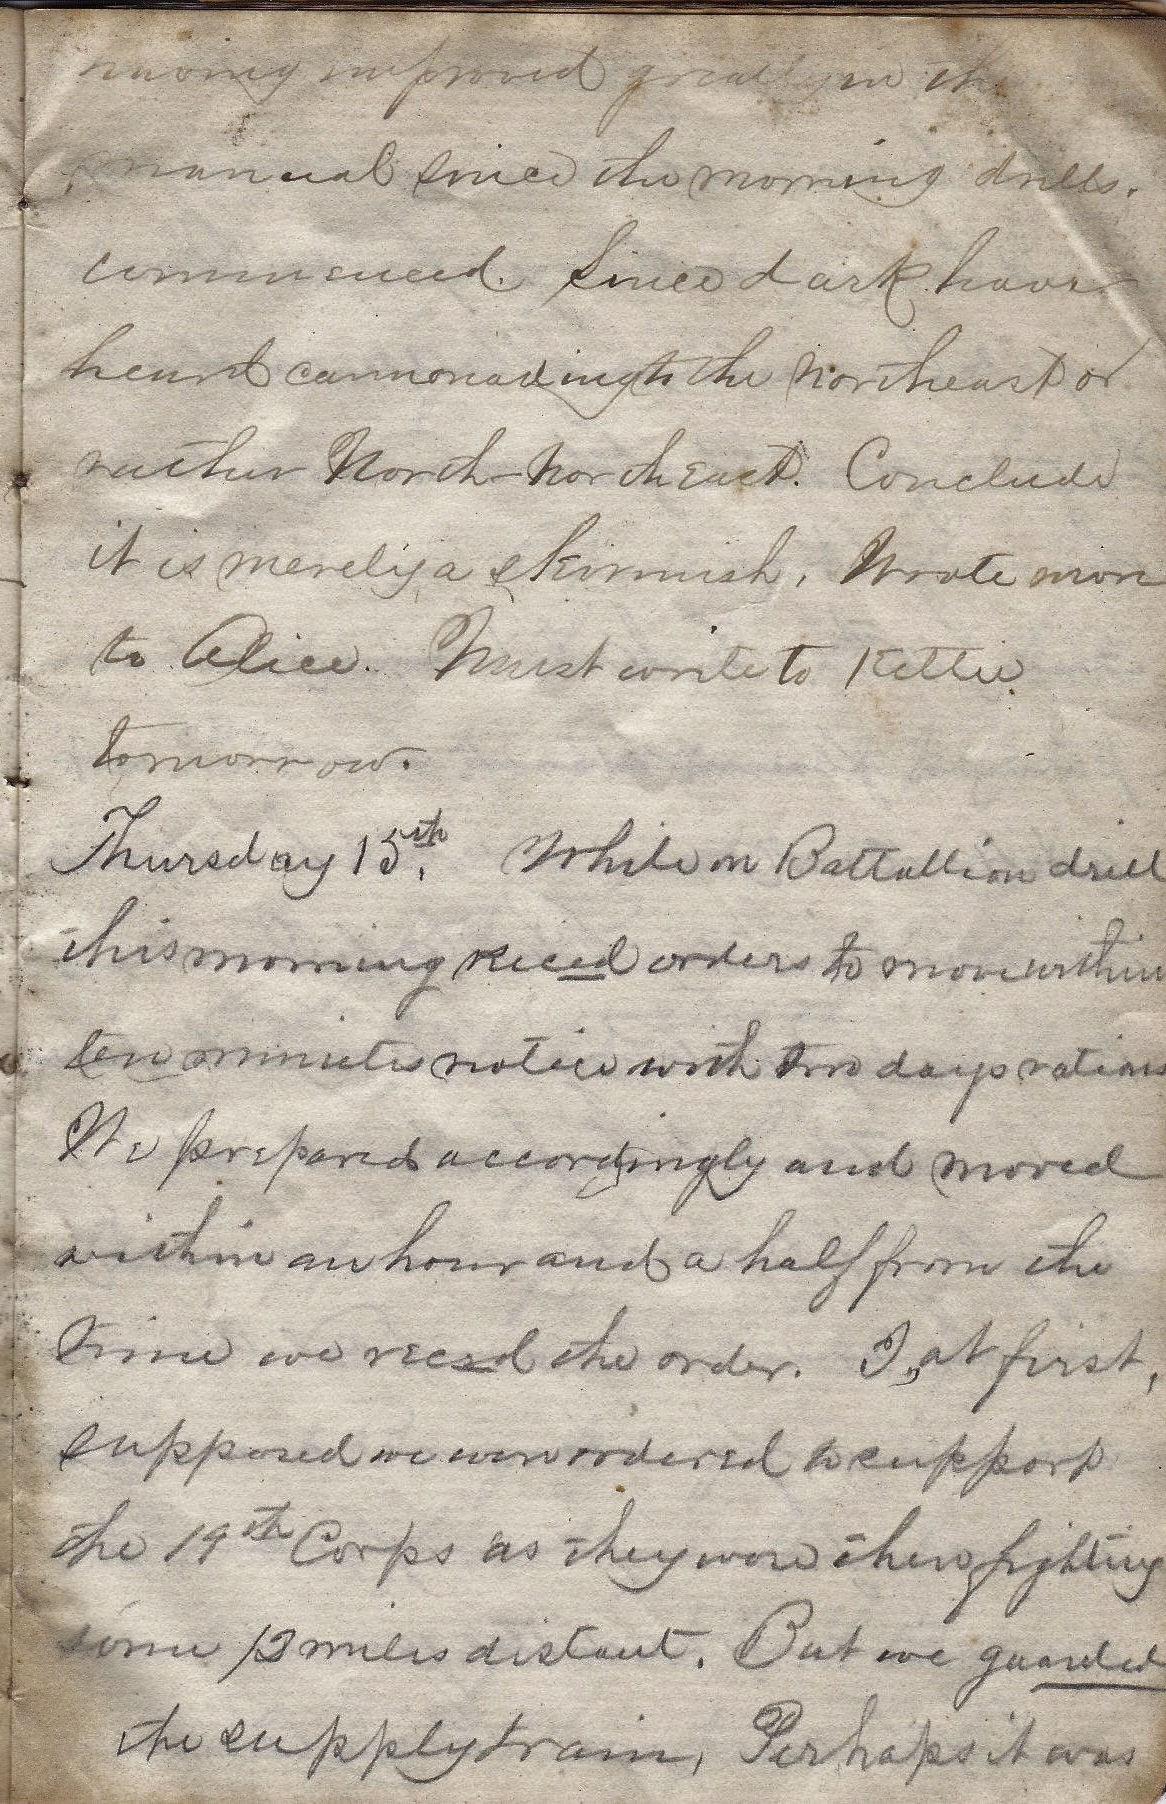 having improved greatly in the
manual since the morning drills.
commenced. Since dark have
heard cannonading to the Northeast or
rather North-North East. Conclude
it is merely a skirmish. Wrote more
to Alice. Must write to Kittie
tomorrow.
Thursday 15th. While on Battallion drill
this morning reced orders to move within
ten minutes notice with two days rations
We prepared accordingly and moved
within an hour and a half from the
time we recd the order. I, at first,
supposed we were ordered to support
the 19th Corps as they were then fighting
some 12 miles distant. But we guarded
the supply train, Perhaps it was